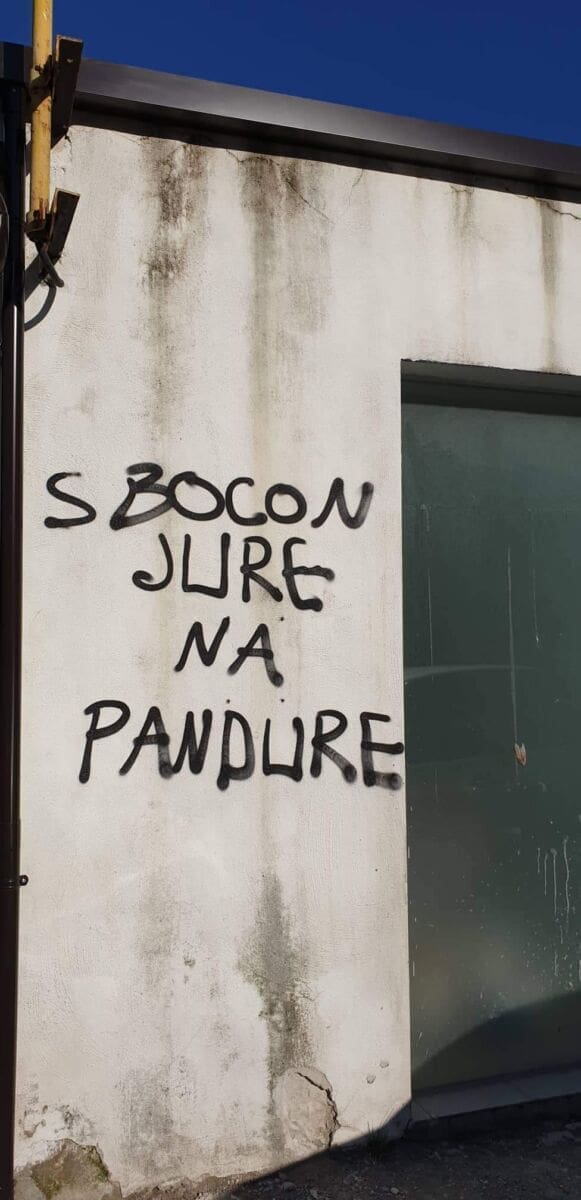 S BOCON
JURE
NA
PANDURE